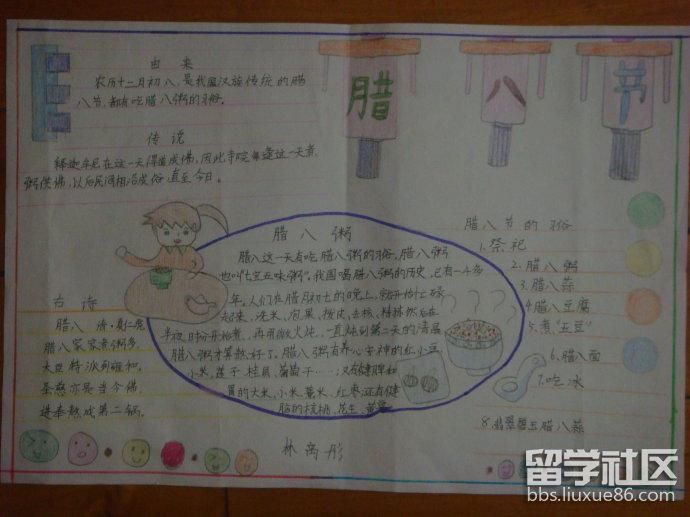 腊八节
由来
农历十二月初八,是我国汉族传统的腊
八节,都有吃腊八粥的习俗。
传说
释迦牟尼在这一天得道成佛,因此寺院每逢这一天煮
粥供佛,以后民间相沿成俗,直至今日。
腊八粥
腊八这一天有吃腊八粥的习俗,腊八粥
也叫“七宝五味粥”。我国喝腊八粥的历史,已有一千多
年。人们在腊月初七的晚上,就开始忙碌
起来,洗米、泡果、拨皮、去核、精拣然后在
半夜时分开始煮,再用微火炖,一直炖到第二天的清晨
腊八粥才算熬好了。腊八粥有养心安神的红小豆
小米、莲子、桂圆、葡萄干……,又有健脾和
胃的大米、小米、薏米、红枣,还有健
脑的核桃、花生、黄豆
古诗
腊八 清·
腊八家家煮粥多,
大臣特派到雍和。
圣慈亦是当今佛,
进奉熬成第二锅。
腊八节的习俗
1.祭祀
2.腊八粥
3.腊八蒜
4.腊八豆腐
5.煮“五豆”
6.腊八面
7.吃冰
8.翡翠碧玉腊八蒜
林禹彤
留学社区
bbs.liuxue86.com